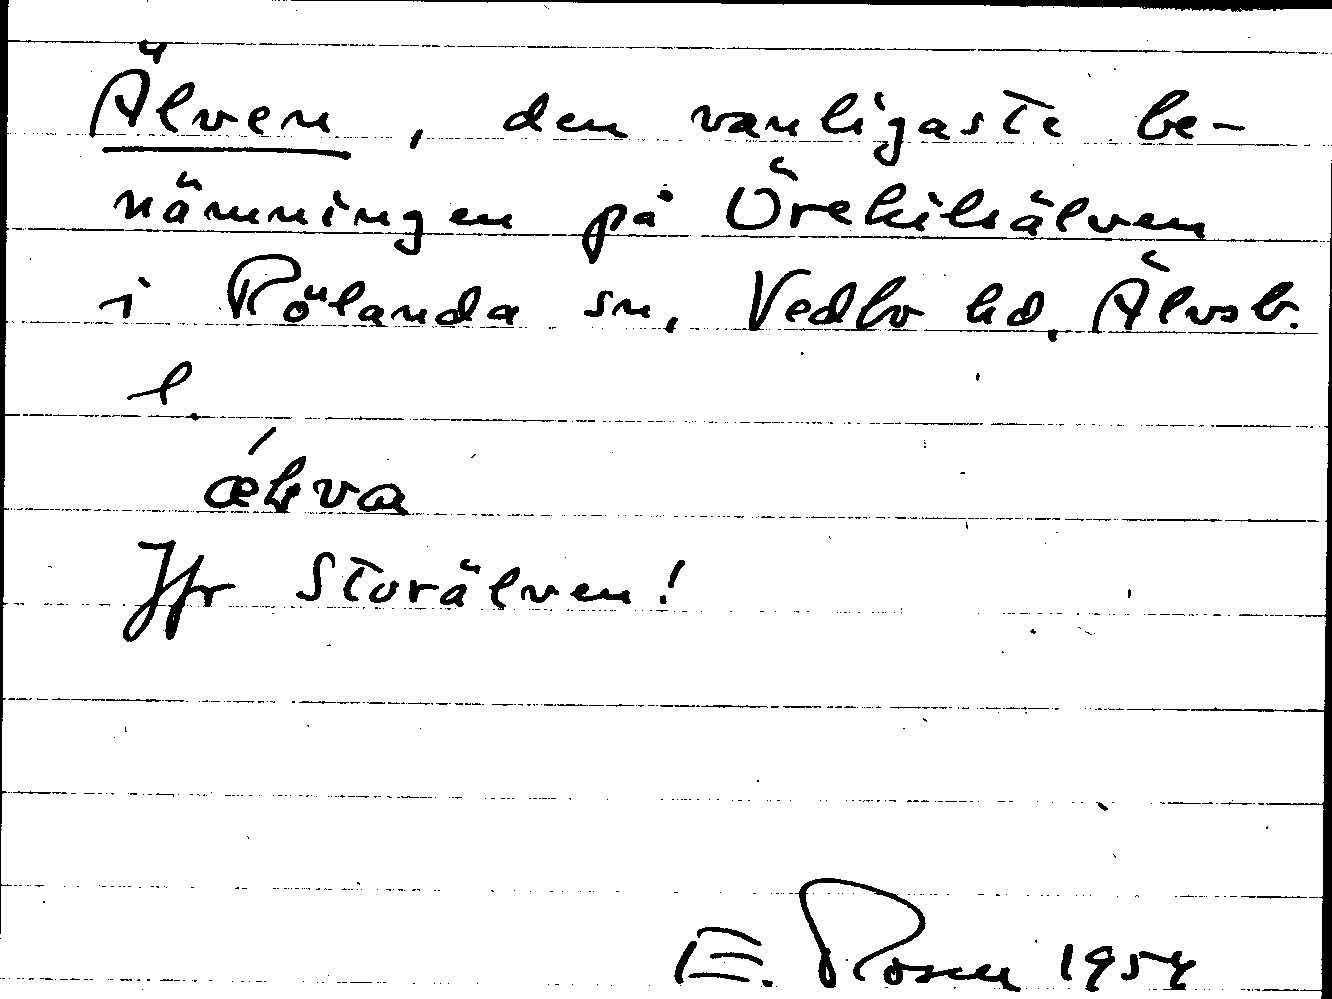 Älven, den vanligaste be-
nämningen på Örekilsälven
i Rölanda sn, Vedbo hd, Älvsb.
l.
Jfr Storälven!
E. Rosen 1954